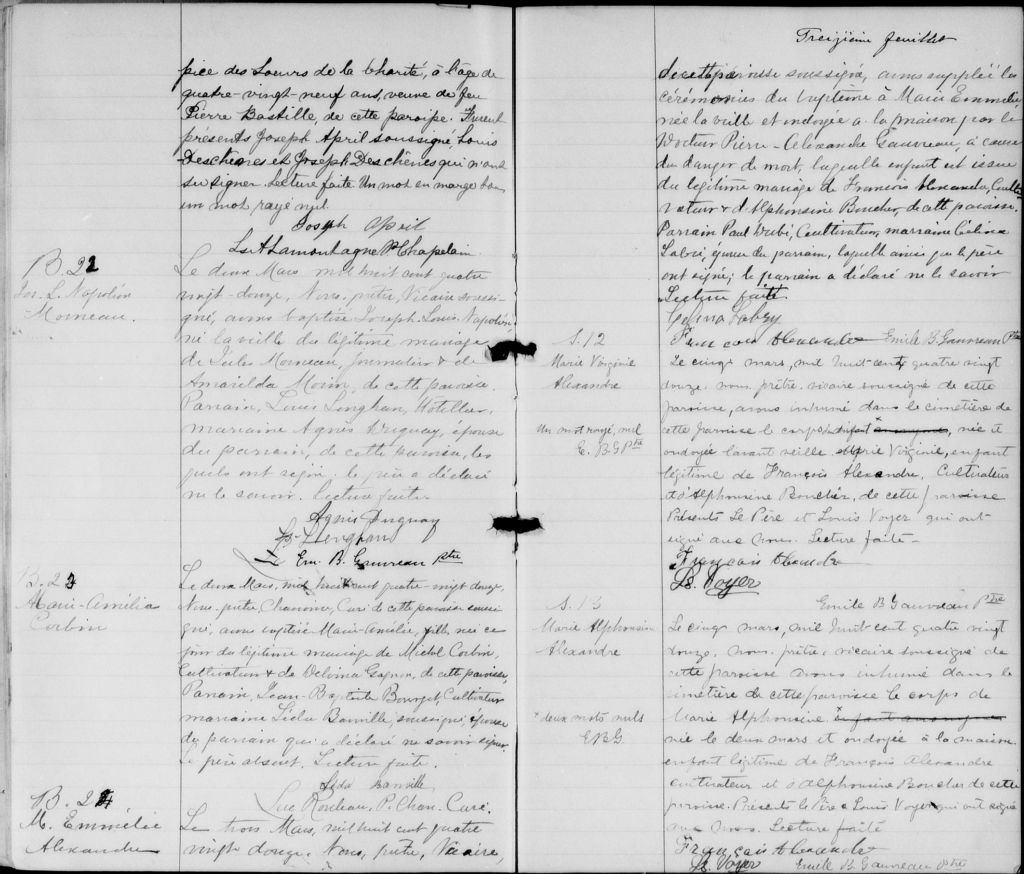 pice des Soeurs de la Charité, à l'âge de
quatre-vingt-neuf ans, veuve de feu
Pierre Bastille, de cette paroisse. Furent
présents Joseph April soussigné Louis
Deschênes et Joseph Deschênes qui n'ont
su signer. Lecture faite Un mot en marge bon
un mot rayé nul.
Joseph April
Ls A Lamontagne Ptre Chapelain
B. 22
Jos. L. Napoléon
Morneau.
Le deux Mars mil huit cent quatre
vingt-douze, Nous, prêtre, Vicaire soussi-
gné, avons baptisé Joseph-Louis-Napoléon,
né la veille du légitime mariage
de Jules Morneau, journalier & de
Amarilda Morin, de cette paroisse.
Parrain, Louis Linghan, Hôtellier,
marraine Agnès Duguay, épouse
du parrain, de cette paroisse, les
quels ont signé. le père a déclaré
ne le savoir. Lecture faite.
Agnès Duguay
Em. B. Gauvreau Ptre
B. 23
Marie-Amélia
Corbin
Le deux Mars, mil huit cent quatre-vingt douze,
Nous, prêtre Chanoine, Curé de cette paroisse soussi-
gné, avons baptisé Marie-Amélie, fille née ce
jour du légitime mariage de Michel Corbin,
Cultivateur & de Delvina Gagnon, de cette paroisse,
Parrain, Jean-Baptiste Bourget, Cultivateur
marraine Lida Banville, soussignée, épouse
du parrain qui a déclaré ne savoir signer.
Le père absent. Lecture faite.
Lida Banville
Luc Rouleau, P. Chan. Curé.
B. 24
M. Emmélie
Alexandre
Le trois Mars, mil huit cent quatre
vingt douze, Nous, prêtre, Vicaire,
Treizième feuillet
de cette paroisse soussigné, avons suppléé les
cérémonies du baptême à Marie Emmélie
née la veille et ondoyée à la maison par le
Docteur Pierre-Alexandre Gauvreau, à cause
du danger de mort, laquelle enfant est issue
du légitime mariage de François Alexandre, Culti-
vateur & d'Alphonsine Boucher, de cette paroisse.
Parrain Paul Dubé, Cultivateur, marraine Célina
Labrie, épouse du parrain, laquelle ainsi que le père
ont signé; le parrain a déclaré ne le savoir
Lecture faite
François Alexandre Emile B. Gauvreau Ptre
S. 12
Marie Virginie
Alexandre
Un mot rayé, nul
E. B. G Ptre
Le cinq mars, mil huit cent quatre vingt
douze, nous, prêtre, vicaire soussigné de cette
paroisse, avons inhumé dans le cimetière de
cette paroisse le corps d'un enfant anonyme, née et
ondoyée l'avant veille Marie Virginie, enfant
légitime de François Alexandre, Cultivateur
et d'Alphonsine Boucher, de cette paroisse
Présents Le Père et Louis Voyer qui ont
signé avec Nous. Lecture faite -
François Alexandre
Ls. Voyer
Emile B Gauvreau Ptre
S. 13
Marie Alphonsine
Alexandre
* deux mots nuls
EBG
Le cinq mars, mil huit cent quatre vingt
douze, nous, prêtre, vicaire soussigné de
cette paroisse avons inhumé dans le
cimetière de cette paroisse le corps de
Marie Alphonsine * enfant anonyme
née le deux mars et ondoyée à la maison
enfant légitime de François Alexandre
cultivateur et d'Alphonsine Boucher de cette
paroisse. Présents le Père & Louis Voyer qui ont signé
avec Nous. Lecture faite
François Alexandre
Ls. Voyer Emile B. Gauvreau Ptre